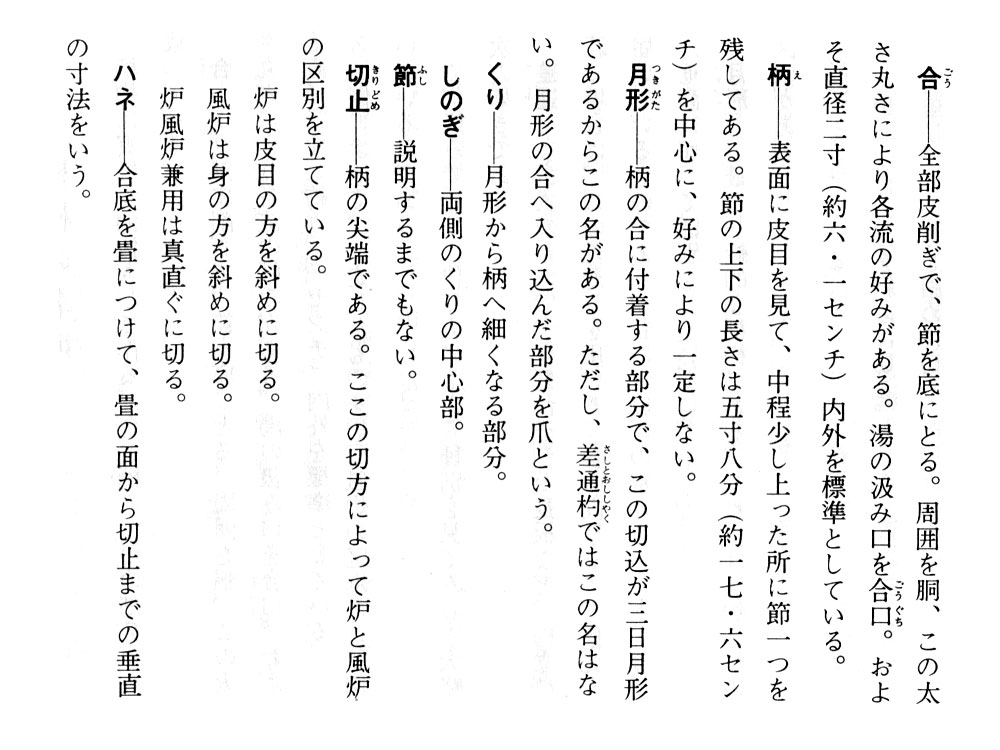 合――全部皮削ぎで、節を底にとる。周囲を胴、この太
さ丸さにより各流の好みがある。湯の汲み口を合口。およ
そ直径二寸（約六・一センチ）内外を標準としている。
柄――表面に皮目を見て、中程少し上った所に節一つを
残してある。節の上下の長さは五寸八分（約一七・六セン
チ）を中心に、好みにより一定しない。
月形――柄の合に付着する部分で、この切込が三日月形
であるからこの名がある。ただし、差通杓ではこの名はな
い。月形の合へ入り込んだ部分を爪という。
くり――月形から柄へ細くなる部分。
しのぎ――両側のくりの中心部。
節――説明するまでもない。
切止――柄の尖端である。ここの切方によって炉と風炉
の区別を立てている。
炉は皮目の方を斜めに切る。
風炉は身の方を斜めに切る。
炉風炉兼用は真直ぐに切る。
ハネ――合底を畳につけて、畳の面から切止までの垂直
の寸法をいう。